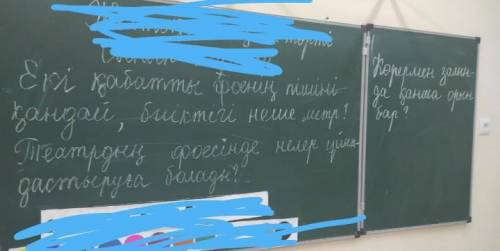 Екі қабатты фоенің пішіні
қандай, биіктегі неше метр?
Театрдың фоесінде нелер ұйым-
дастыруға болады?
Көрермен залын-
да қанша орын
бар?